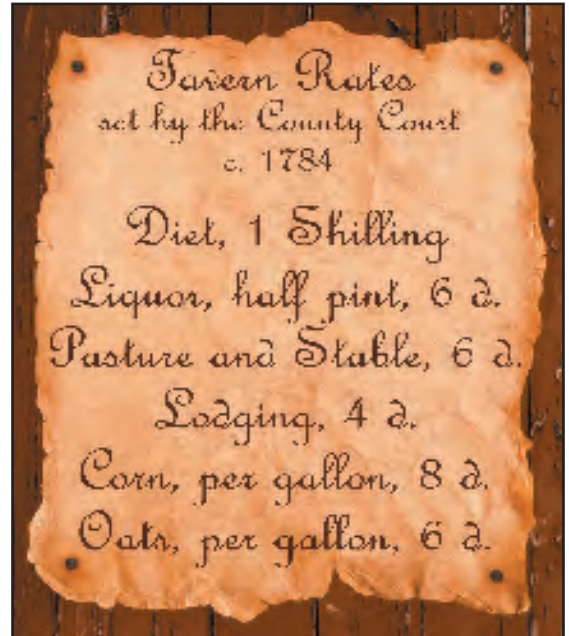 Tavern Rates
set by the County Court
c. 1784
Diet, 1 Shilling
Liquor, half pint, 6 d.
Pasture and Stable, 6 d.
Lodging, 4 d.
Corn, per gallon, 8 d.
Oats, per gallon, 6 d.